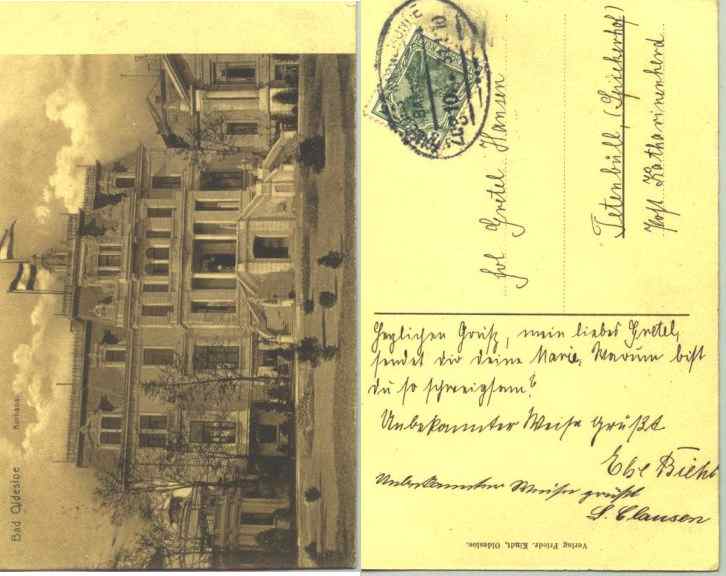 Bad Oldesloe
Kurhaus.
Frl. Gretel Hansen
Tetenbüll, (Spiekerhof)
Post Katharinenherd.
Herzlichen Gruß, mein liebes Gretel,
sendet dir deine Marie. Warum bist
du so schweigsam?
Unbekannter Weise grüßt
Unbekannter Weise grüßt
L. Clausen
Verlag Friedr. Kindt, Oldesloe.